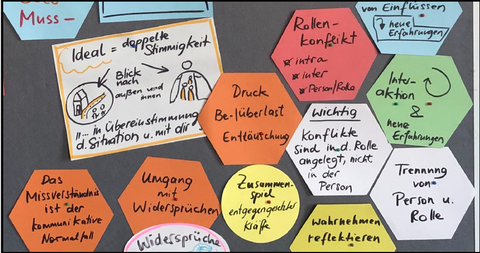 Muss -
von Einflüssen
↳ neue
Erfahrungen
Ideal = doppelte
Stimmigkeit
Blick
nach
außen und
innen
"... in Übereinstimmung
d. Situation u. mit dir
Rollen-
konflikt
intra
inter
Person/Rolle
Inter-
aktion
&
neue
Erfahrungen
Druck
Be-/Überlast
Enttäuschung
Wichtig
Konflikte
sind in d. Rolle
angelegt, nicht
in der
Person
Das
Missverständnis
ist der
kommunikative
Normalfall
Umgang
mit
Widersprüchen
Zusammen-
spiel
entgegengesetzter
Kräfte
Trennung
von
Person u.
Rolle
Wahrnehmen
reflektieren
Widersprüche